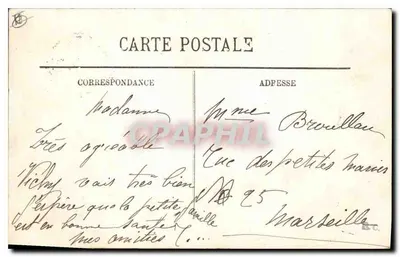 CARTE POSTALE
CORRESPONDANCE
Madame
Très agréable
Vichy vais très bien
J'espère que la petite famille
est en bonne santé
mes amitiés
ADRESSE
Mme Brouillau
Rue des petites Maries
N 25
Marseille
CPAPHIL